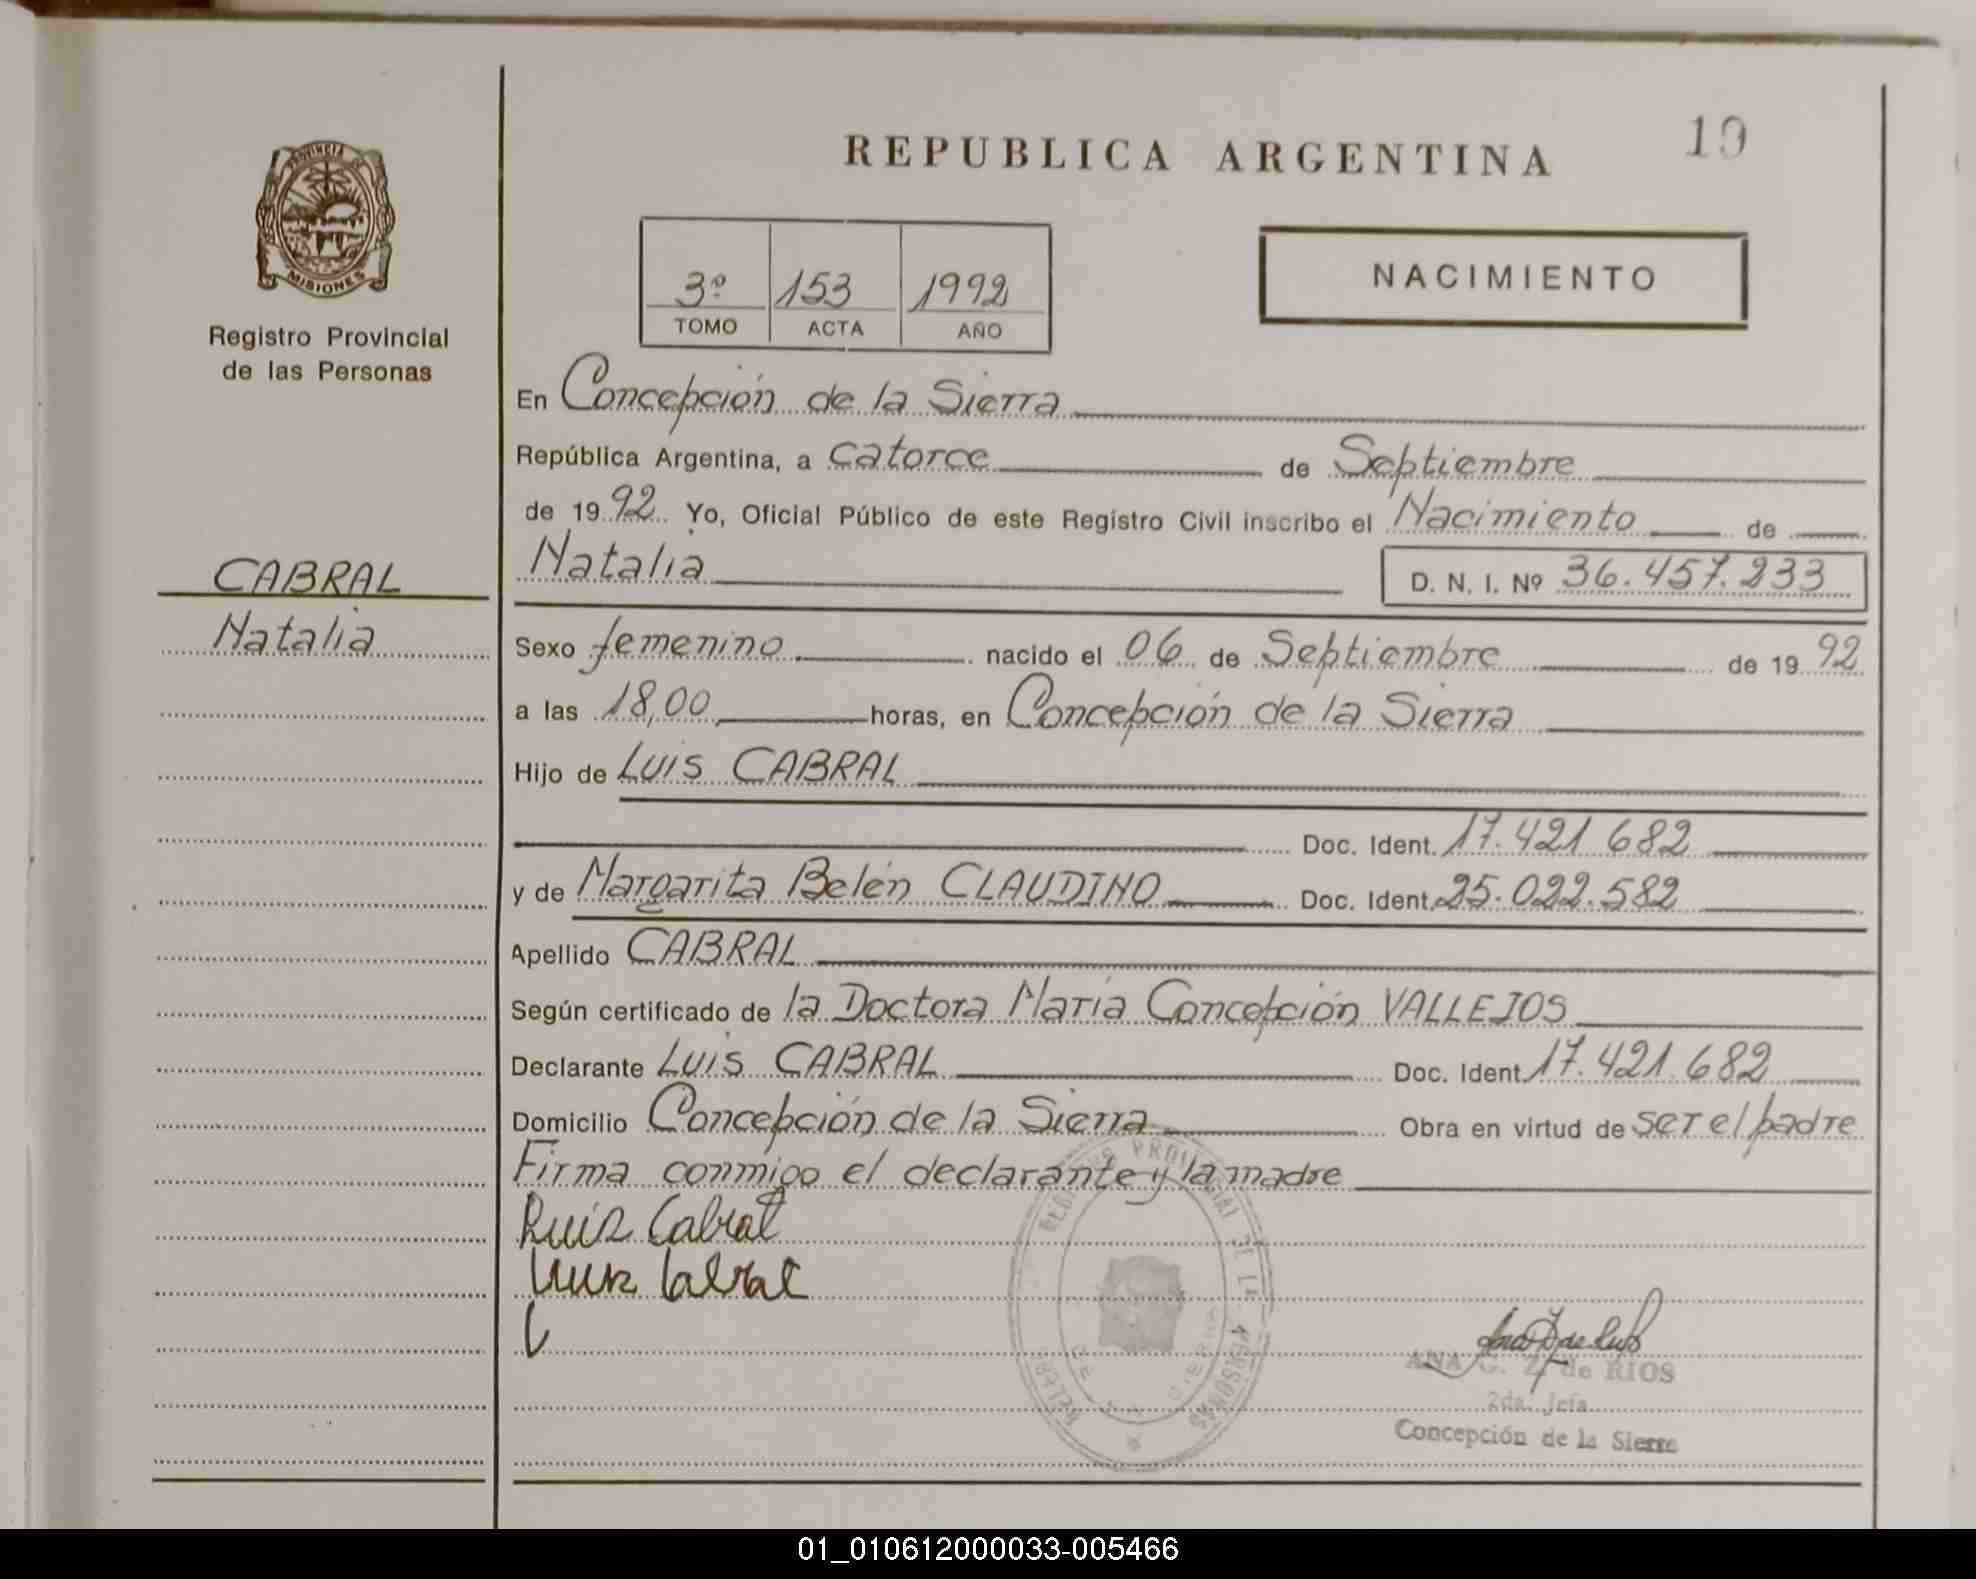 PROVINCIA DE
MISIONES
Registro Provincial
de las Personas
CABRAL
Natalia
REPUBLICA ARGENTINA
19
3º 153 1992
TOMO ACTA AÑO
NACIMIENTO
En Concepción de la Sierra
República Argentina, a catorce de Septiembre
de 1992 Yo, Oficial Público de este Registro Civil inscribo el Nacimiento de
Natalia D. N. I. Nº 36.457.233
Sexo femenino nacido el 06 de Septiembre de 1992
a las 18,00 horas, en Concepción de la Sierra
Hijo de Luis CABRAL
Doc. Ident. 17.421.682
y de Margarita Belén CLAUDINO Doc. Ident. 25.022.582
Apellido CABRAL
Según certificado de la Doctora María Concepción VALLEJOS
Declarante Luis CABRAL Doc. Ident. 17.421.682
Domicilio Concepción de la Sierra Obra en virtud de ser el padre
Firma conmigo el declarante y la madre
Ruiz Cabral
Cabral
ANA de RIOS
2da. Jefa
Concepción de la Sierra
01_010612000033-005466